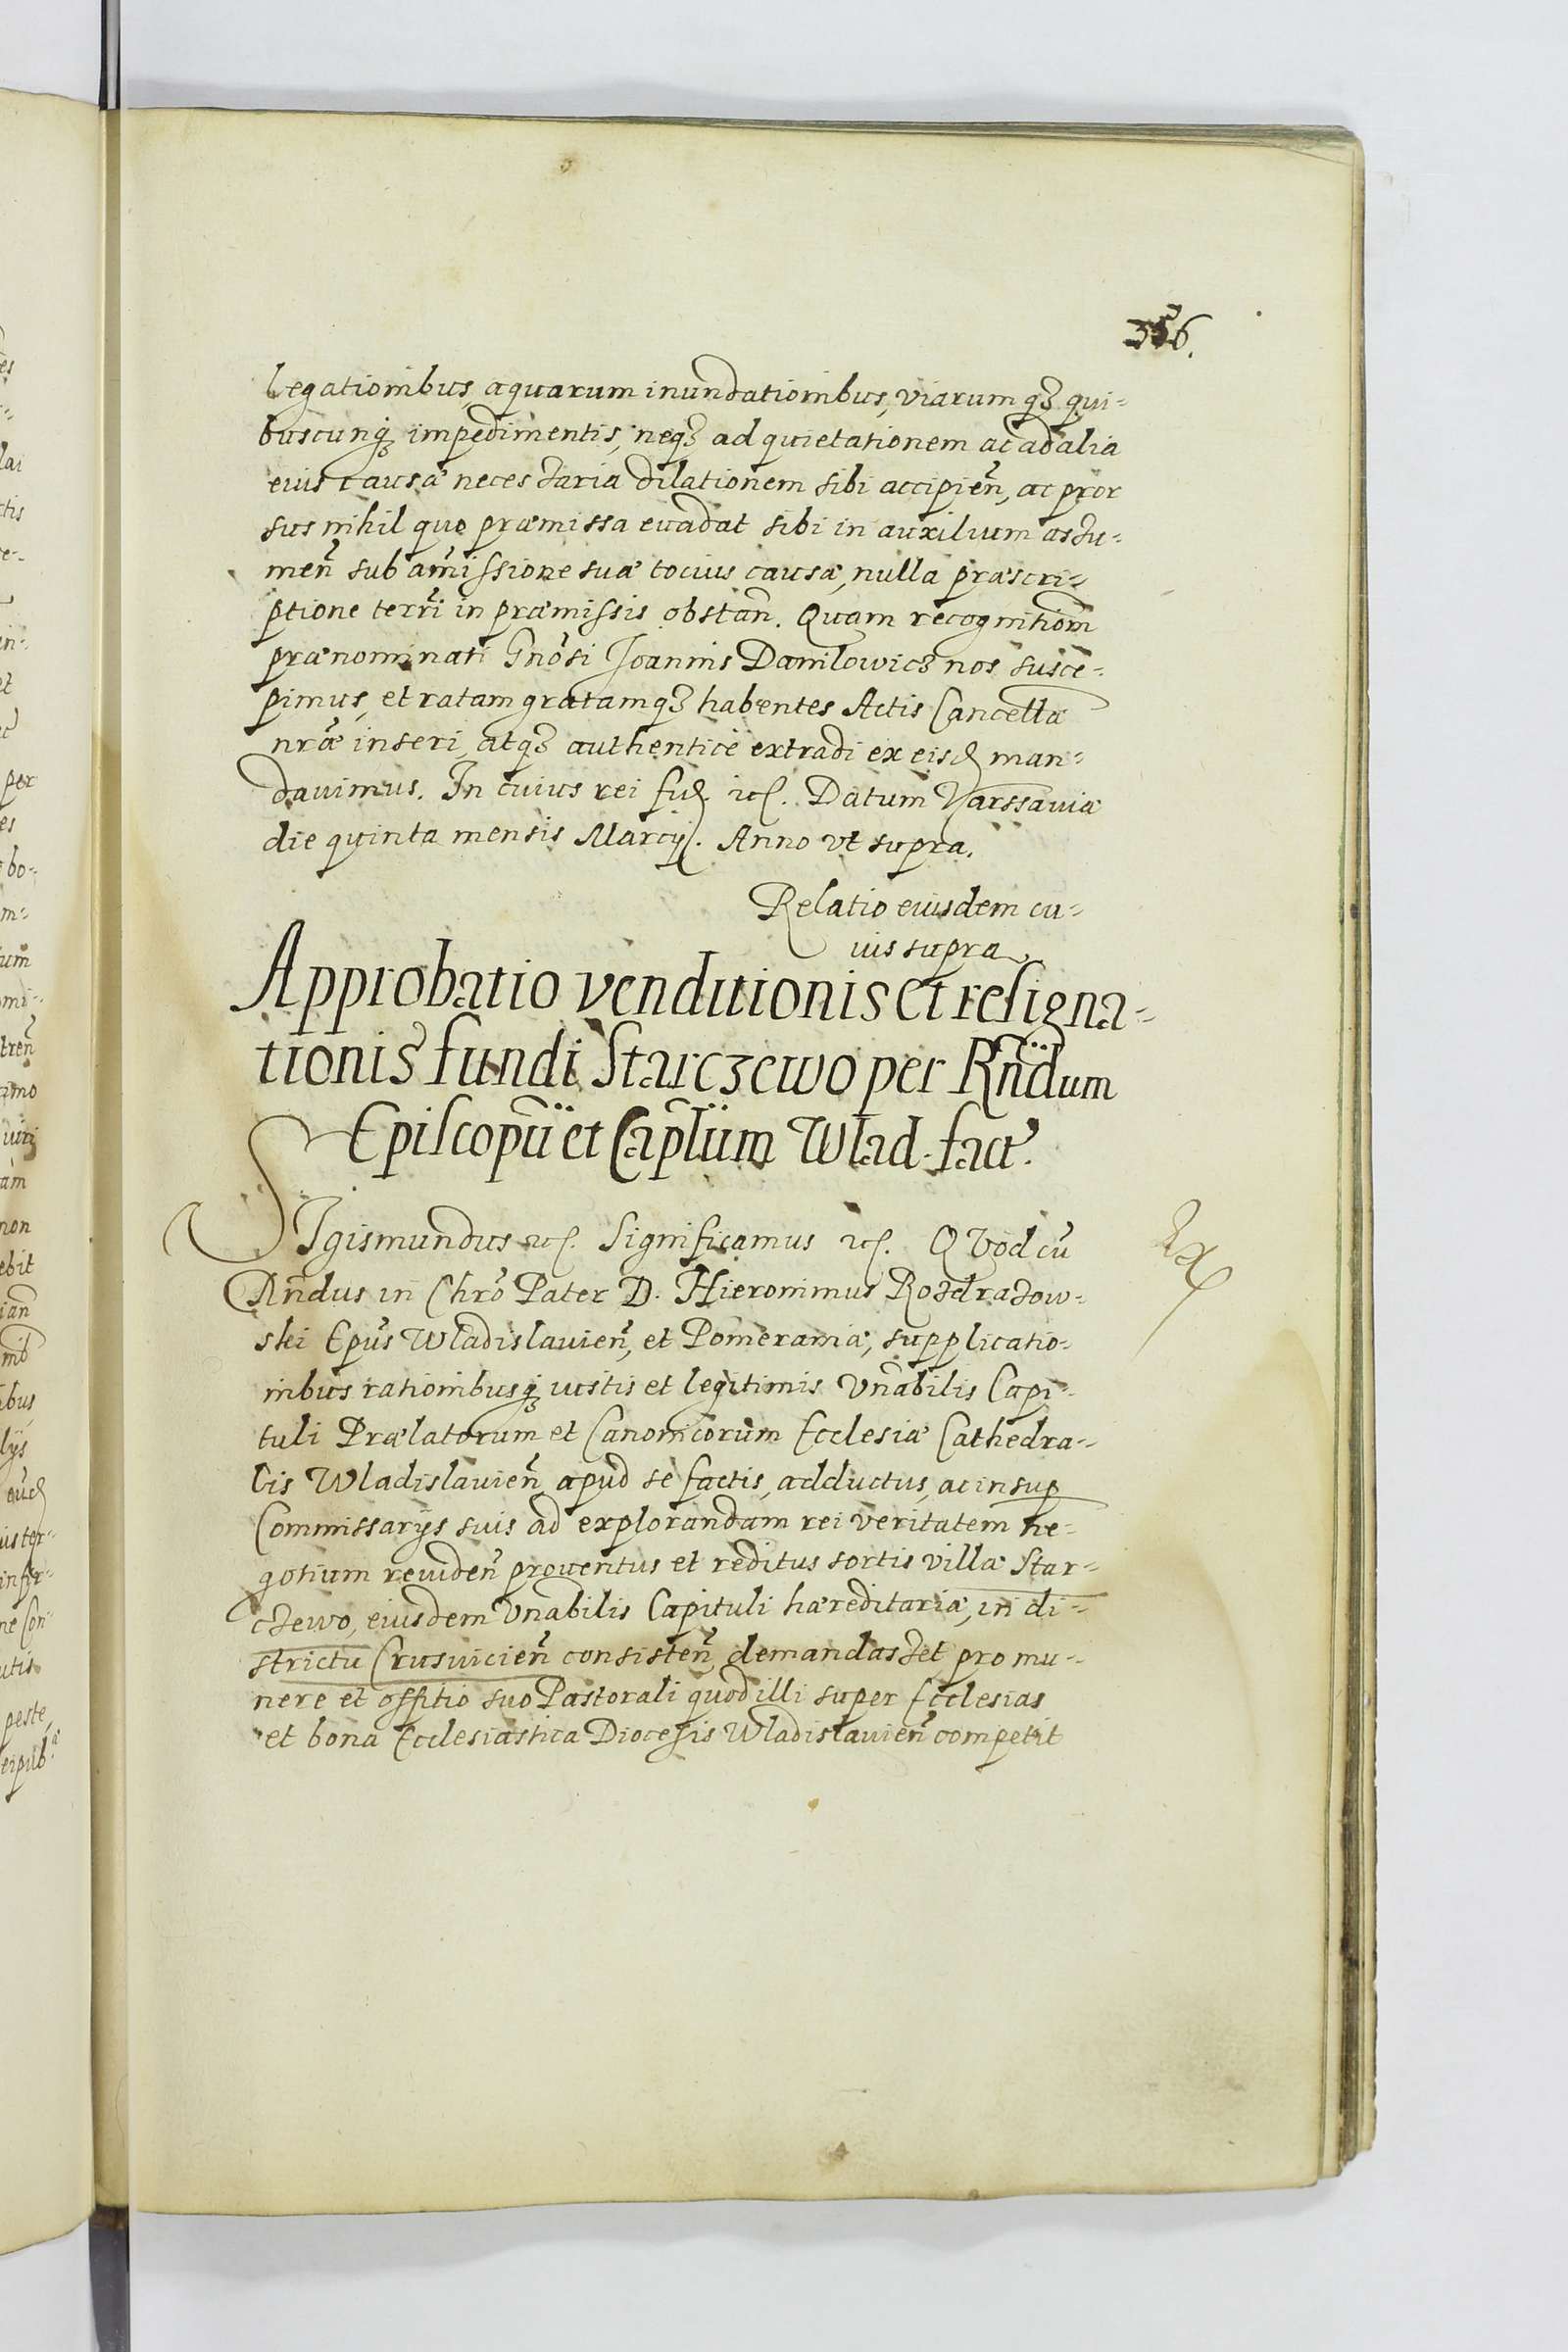 356.
legationibus, aquarum inundationibus, viarumq3 qui-
buscunq3 impedimentis, neq3 ad quietationem ac ad alia
eius causæ necessaria dilationem sibi accipien̄, ac pror
sus nihil quo præmissa euadat sibi in auxilium assu-
men̄ sub amissione suæ tocius causæ, nulla præscri-
ptione terr̄i in præmissis obstan̄. Quam recognitiom̄
prænominati Gnōsi Joannis Danilowicz nos susce-
pimus, et ratam gratamq3 habentes Actis Cancellæ
nr̄æ inseri, atq3 authentice extradi ex eisd man-
dauimus. In cuius rei fid. etc. Datum Varssauiæ
die quinta mensis Marcÿ. Anno vt supra.
Relatio eiusdem cu-
ius supra.
Approbatio venditionis et resigna-
tionis fundi Starczewo per Rn̄dum
Episcopū et Cap̄lum Wlad. fact.
SIgismundus etc. Significamus etc. QVod cū
Rn̄dus in Chrō Pater D. Hieronimus Rozdrazow-
ski Epūs Wladislauien̄, et Pomeraniæ, supplicatio-
nibus rationibusq3 iustis et legitimis Vn̄abilis Capi-
tuli Prælatorum et Canonicorum Ecclesiæ Cathedra-
lis Wladislauien̄ apud se factis, adductus, ac insup
Commissarÿs suis ad explorandam rei veritatem ne-
gotium reuiden̄ prouentus et reditus sortis villæ Star-
czewo, eiusdem Vn̄abilis Capituli hæreditariæ, in di-
strictu Crusuicien̄ consisten̄ demandasset pro mu-
nere et offitio suo Pastorali quod illi super Ecclesias
et bona Ecclesiastica Diocesis Wladislauien̄ competit